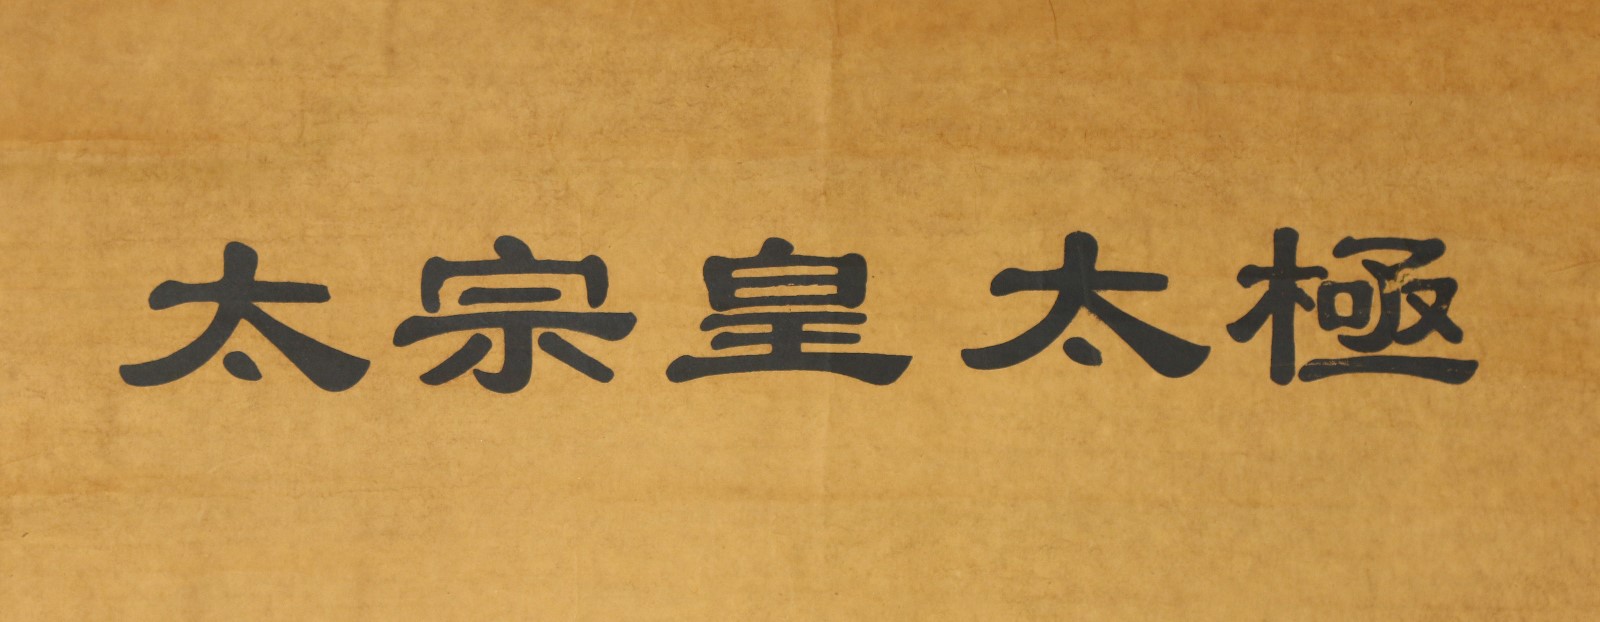 太宗皇太極